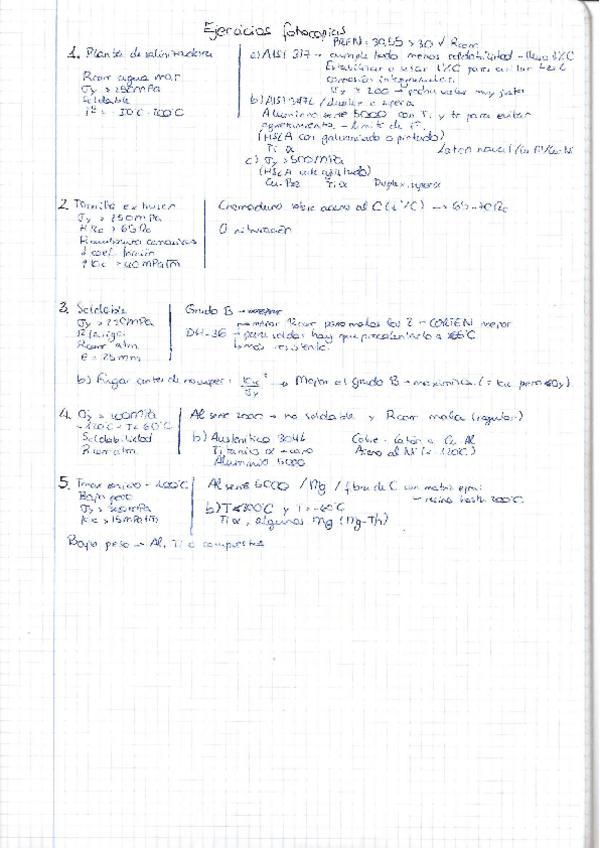 Ejercicios fotocopias
1. Planta desalinizadora
Rcorr agua mar
σy > 250MPa
Soldable
Tª = -30ºC - 100ºC
PREN = 30,55 > 30 ✓ Rcorr
a) AISI 317 → cumple todo menos soldabilidad - lleva ↑%C
Estabilizar o usar ↓%C para evitar
corrosión intergranular.
σy > 200 → pedir valor muy justo
b) AISI 317L / duplex o super
Aluminio serie 5000 con Ti y tto para evitar
agrietamiento - límite de Tª.
(HSLA con galvanizado o pintado)
Ti α
Latón naval
c) σy > 500MPa
(HSLA
Cu-Be2 Ti α Duplex, super
2. Tornillo extrusor
σy > 250MPa
HRc > 65Rc
Recubrimientos cerámicos
↓ coef. fricción
↑ KIC > 40MPa√m
Cromoduro sobre acero al C (↓%C) → 65-70Rc
O nitruración
3. Soldable
σy > 250MPa
Rcorr atm.
e = 25mm
Grado B →
menor Rcorr para malos los 2 → CORTEN mejor
DH-36 → para soldar hay que precalentarlo a
→ más resistente.
b) Fugar antes de romper: KIC²/σy → Mejor el grado B → maximiza. (= KIC pero <σy).
4. σy > 100MPa
-120ºC < T < 60ºC
Soldabilidad
Rcorr atm
Al serie 2000 → no soldable y Rcorr mala (regular)
b) Austenítico 304L Cobre - latón o Cu-Al
Titanio α → caro Acero al Ni (< -120ºC)
Aluminio 5000
5. Tmax envío - 200ºC
Bajo peso
σy > 300MPa
KIC > 15MPa√m
Al serie 6000 / Mg / fibra de C con matriz epoxi
→ resina hasta 200ºC
b) T < 300ºC y T > -60ºC
Ti α, algunos Mg (Mg-Th)
Bajo peso → Al, Ti o compuestos